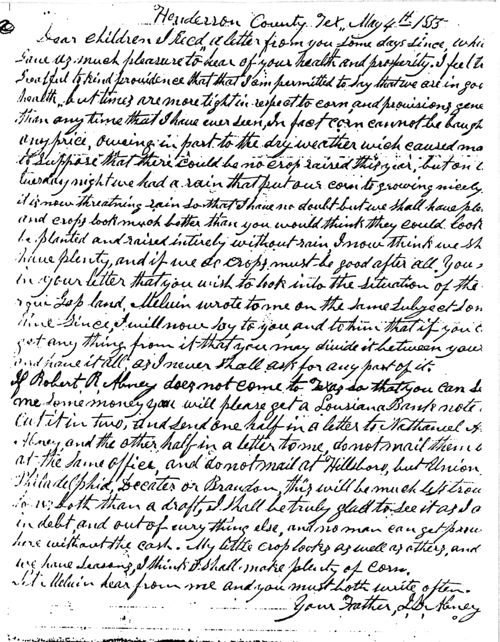 Henderson County, Tex, May 4th, 1855
Dear children I Recd, a letter from you some days since, whi
gave us much pleasure to hear of your health and prosperity. I feel
greatful to kind providence that that I am permitted to say that we are in go
health, but times are more tight in respect to corn and provisions, gene
than any time that I have ever seen, In fact corn cannot be bough
any price, oweing in part to the dry weather wich caused ma
to suppose that there could be no crop raised this year, but on
tuesday night we had a rain that put our corn to growing nicely.
it is now threatning rain so that I have no doubt but we shall have ple
and crops look much better than you would think they could look
be planted and raised intirely without rain I now think we sh
have plenty, and if we do crops must be good after all. You
in your letter that you wish to look into the situation of the
land, Melvin wrote to me on the same subject som
time since, I will now say to you and to him that if you c
get any thing from it that you may divide it between your
and have it all, as I never shall ask for any part of it.
If Robert R. Abney does not come to Texas so that you can se
me some money you will please get a Lousiana Bank note
cut it in two, and send one half in a letter to Nathaniel A.
Abney, and the other half in a letter to me, do not mail them
at the same office, and do not mail at Hillsboro, but Union,
Philadelphid, Decater or Brandon, this will be much less trou
to us both than a draft, I shall be truly glad to see it as I a
in debt and out of evry thing else, and no man can get prov
here without the cash. My little crop looks as well as others, and
we have seasons, I think I shall make plenty of corn.
Let Melvin hear from me and you must both write often.
Your Father, Abney